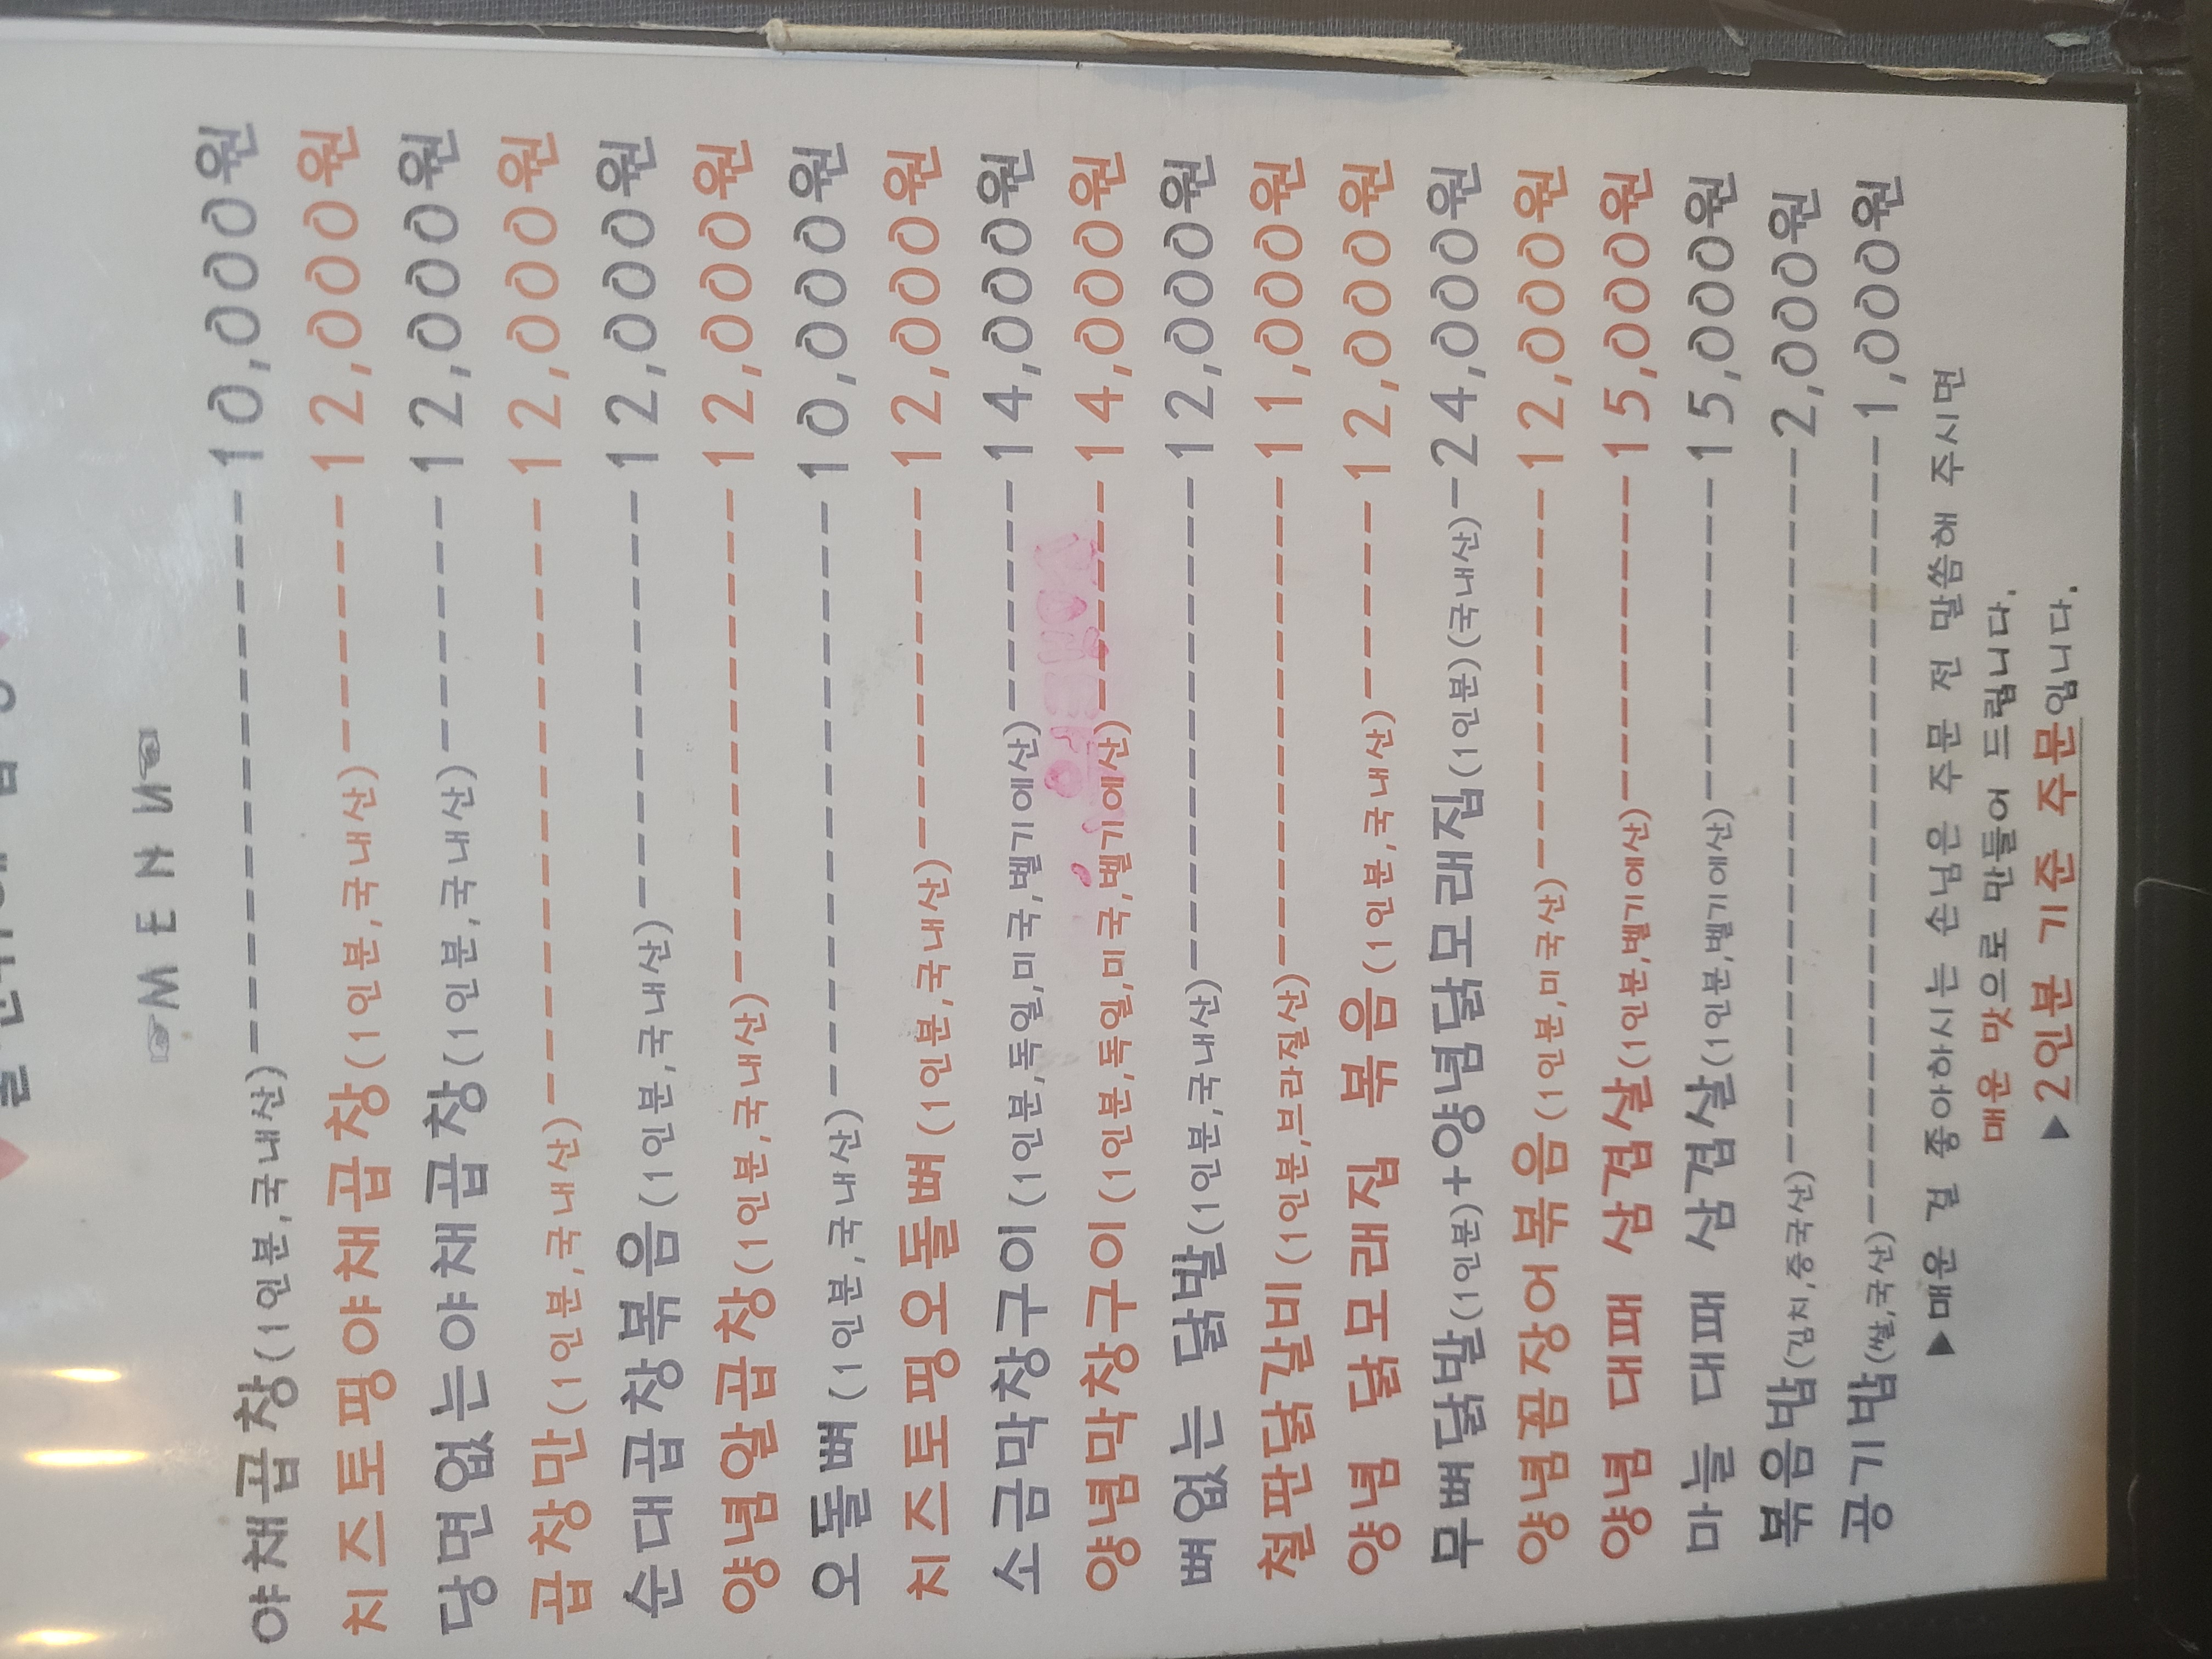 ☞M E N U☜
야채곱창(1인분,국내산)-----------------10,000원
치즈토핑야채곱창(1인분,국내산)--------12,000원
당면없는야채곱창(1인분,국내산)--------12,000원
곱창만(1인분,국내산)------------------12,000원
순대곱창볶음(1인분,국내산)------------12,000원
양념알곱창(1인분,국내산)--------------12,000원
오돌뼈(1인분,국내산)------------------10,000원
치즈토핑오돌뼈(1인분,국내산)-----------12,000원
소금막창구이(1인분,독일,미국,벨기에산)-------14,000원
양념막창구이(1인분,독일,미국,벨기에산)-------14,000원
뼈없는 닭발(1인분,국내산)---------------12,000원
철판닭갈비(1인분,브라질산)---------------11,000원
양념 닭모래집 볶음(1인분,국내산)------12,000원
무뼈닭발(1인분)+양념닭모래집(1인분)(국내산)-24,000원
양념꼼장어볶음(1인분,미국산)------------12,000원
양념 대패 삼겹살(1인분,벨기에산)----------15,000원
마늘 대패 삼겹살(1인분,벨기에산)----------15,000원
볶음밥(김치,중국산)----------------------2,000원
공기밥(쌀,국산)-------------------------1,000원
▶매운 걸 좋아하시는 손님은 주문 전 말씀해 주시면
매운 맛으로 만들어 드립니다.
▶2인분 기준 주문입니다.